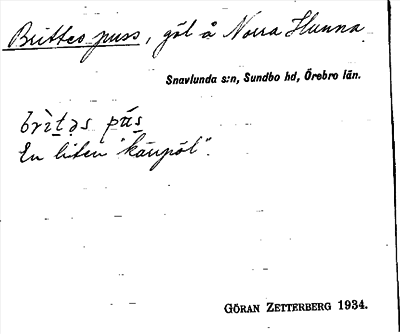 Brittes puss, göl å Norra Hunna
Snavlunda s:n, Sundbo hd, Örebro län.
brìt̲ə̣s pū́s̲
En liten "kärrpöl".
GÖRAN ZETTERBERG 1934.